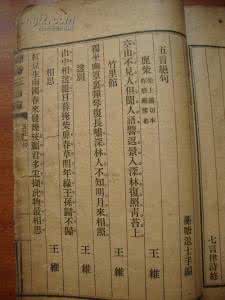 七言律詩終
蘅塘退士手編
五言絕句
鹿柴 王維
空山不見人但聞人語響返景入深林復照青苔上
竹里館 王維
獨坐幽篁裏彈琴復長嘯深林人不知明月來相照
送別 王維
山中相送罷日暮掩柴扉春草明年綠王孫歸不歸
相思 王維
紅豆生南國春來發幾枝願君多采擷此物最相思